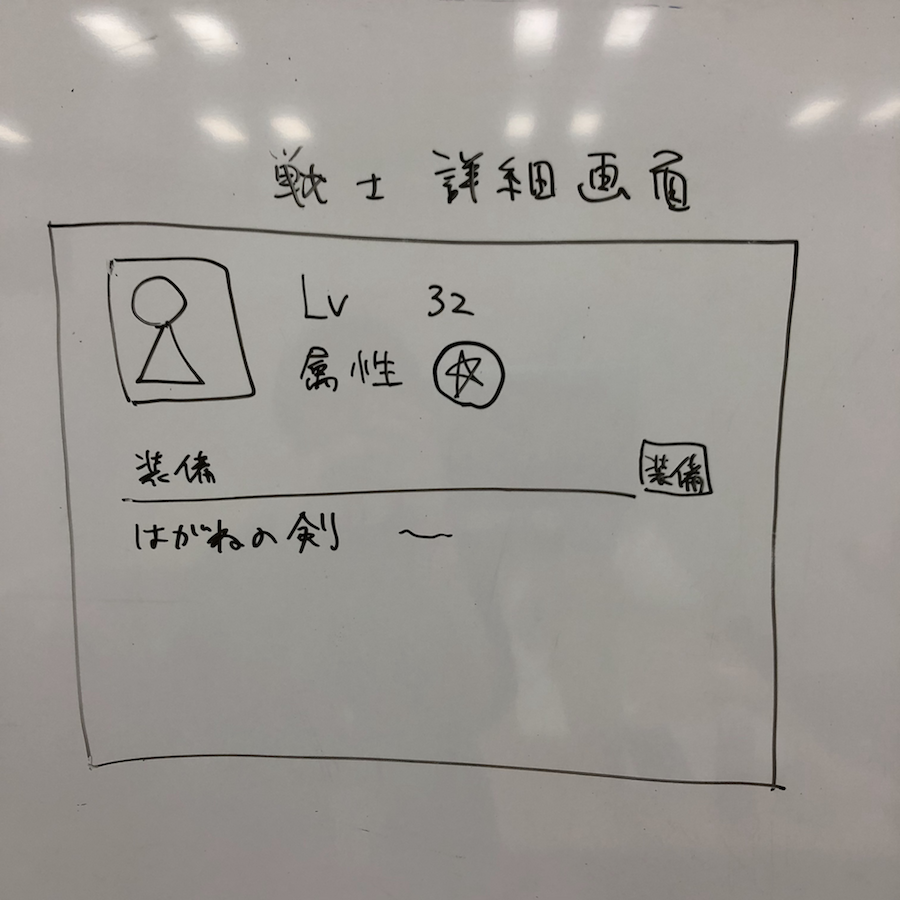 戦士 詳細画面
Lv 32
属性
装備 装備
はがねの剣 〜